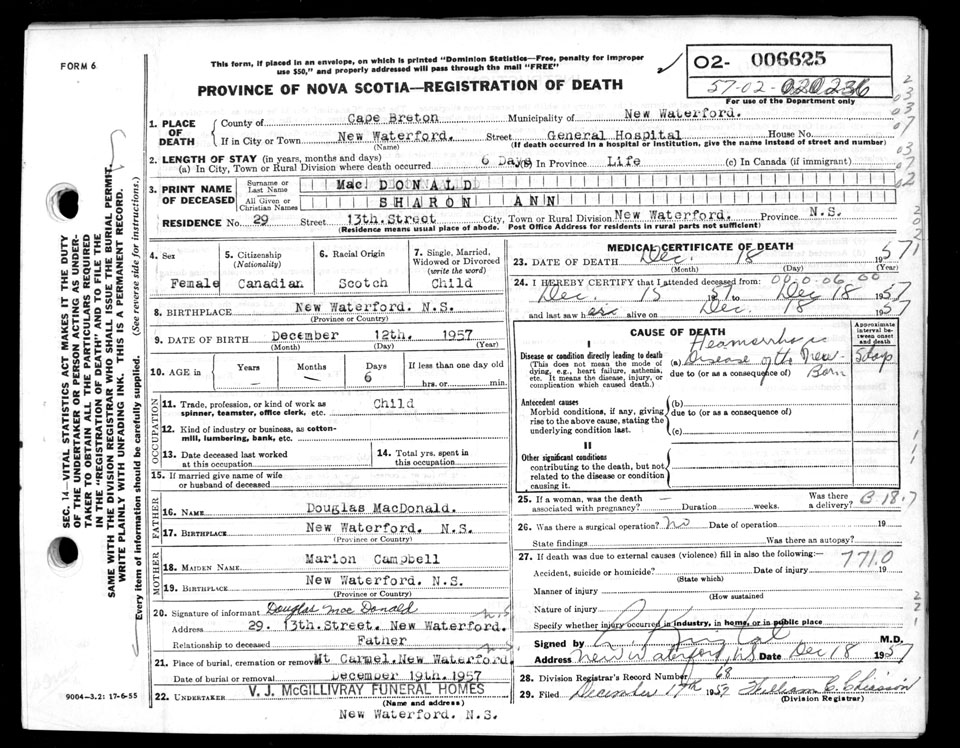 FORM 6
This form, if placed in an envelope, on which is printed "Dominion Statistics—Free, penalty for improper
use $50," and properly addressed will pass through the mail "FREE"
02- 006625
57-02-020236
For use of the Department only
PROVINCE OF NOVA SCOTIA—REGISTRATION OF DEATH
1. PLACE OF DEATH
County of Cape Breton Municipality of New Waterford.
If in City or Town New Waterford. Street General Hospital House No.
(Name) (If death occurred in a hospital or institution, give the name instead of street and number)
2. LENGTH OF STAY (in years, months and days)
(a) In City, Town or Rural Division where death occurred 6 Days (b) In Province Life (c) In Canada (if immigrant)
3. PRINT NAME OF DECEASED
Surname or Last Name MacDONALD
All Given or Christian Names SHARON ANN
RESIDENCE No. 29 Street 13th.Street City, Town or Rural Division New Waterford. Province N.S.
(Residence means usual place of abode. Post Office Address for residents in rural parts not sufficient)
4. Sex Female
5. Citizenship (Nationality) Canadian
6. Racial Origin Scotch
7. Single, Married, Widowed or Divorced (write the word) Child
8. BIRTHPLACE New Waterford. N.S.
(Province or Country)
9. DATE OF BIRTH December 12th. 1957
(Month) (Day) (Year)
10. AGE in Years — Months — Days 6 If less than one day old hrs. or min.
OCCUPATION
11. Trade, profession, or kind of work as spinner, teamster, office clerk, etc. Child
12. Kind of industry or business, as cotton-mill, lumbering, bank, etc.
13. Date deceased last worked at this occupation
14. Total yrs. spent in this occupation
15. If married give name of wife or husband of deceased
FATHER
16. NAME Douglas MacDonald.
17. BIRTHPLACE New Waterford. N.S.
(Province or Country)
MOTHER
18. MAIDEN NAME Marion Campbell
19. BIRTHPLACE New Waterford. N.S.
(Province or Country)
20. Signature of informant Douglas MacDonald
Address 29. 13th.Street. New Waterford. N.S.
Relationship to deceased Father
21. Place of burial, cremation or removal Mt Carmel.New Waterford. N.S.
Date of burial or removal December 19th.1957
22. UNDERTAKER V. J. McGILLIVRAY FUNERAL HOMES
(Name and address)
New Waterford. N.S.
MEDICAL CERTIFICATE OF DEATH
23. DATE OF DEATH Dec. 18 1957
(Month) (Day) (Year)
24. I HEREBY CERTIFY that I attended deceased from: 00.0.06.00
Dec. 15 1957 to Dec 18 1957
and last saw her alive on Dec. 18 1957
CAUSE OF DEATH
Approximate interval between onset and death
I
Disease or condition directly leading to death
(This does not mean the mode of dying, e.g., heart failure, asthenia, etc. It means the disease, injury, or complication which caused death.)
(a) Heamorrhagic Disease of the New-Born 5 days
due to (or as a consequence of)
Antecedent causes
Morbid conditions, if any, giving rise to the above cause, stating the underlying condition last.
(b)
due to (or as a consequence of)
(c)
II
Other significant conditions
contributing to the death, but not related to the disease or condition causing it.
25. If a woman, was the death associated with pregnancy? — Duration weeks. Was there a delivery?
26. Was there a surgical operation? no Date of operation 19
State findings Was there an autopsy?
27. If death was due to external causes (violence) fill in also the following:— 771.0
Accident, suicide or homicide? Date of injury 19
(State which)
Manner of injury
(How sustained
Nature of injury
Specify whether injury occurred in industry, in home, or in public place
Signed by M.D.
Address New Waterford, N.S. Date Dec 18 1957
28. Division Registrar's Record Number 68
29. Filed December 19th 1957 William C. Chiasson
(Division Registrar)
SEC. 14—VITAL STATISTICS ACT MAKES IT THE DUTY
OF THE UNDERTAKER OR PERSON ACTING AS UNDER-
TAKER TO OBTAIN ALL THE PARTICULARS REQUIRED
IN THE "REGISTRATION OF DEATH" AND TO FILE THE
SAME WITH THE DIVISION REGISTRAR WHO SHALL ISSUE THE BURIAL PERMIT.
WRITE PLAINLY WITH UNFADING INK. THIS IS A PERMANENT RECORD.
Every item of information should be carefully supplied. (See reverse side for instructions.)
9004-3.2: 17-6-55